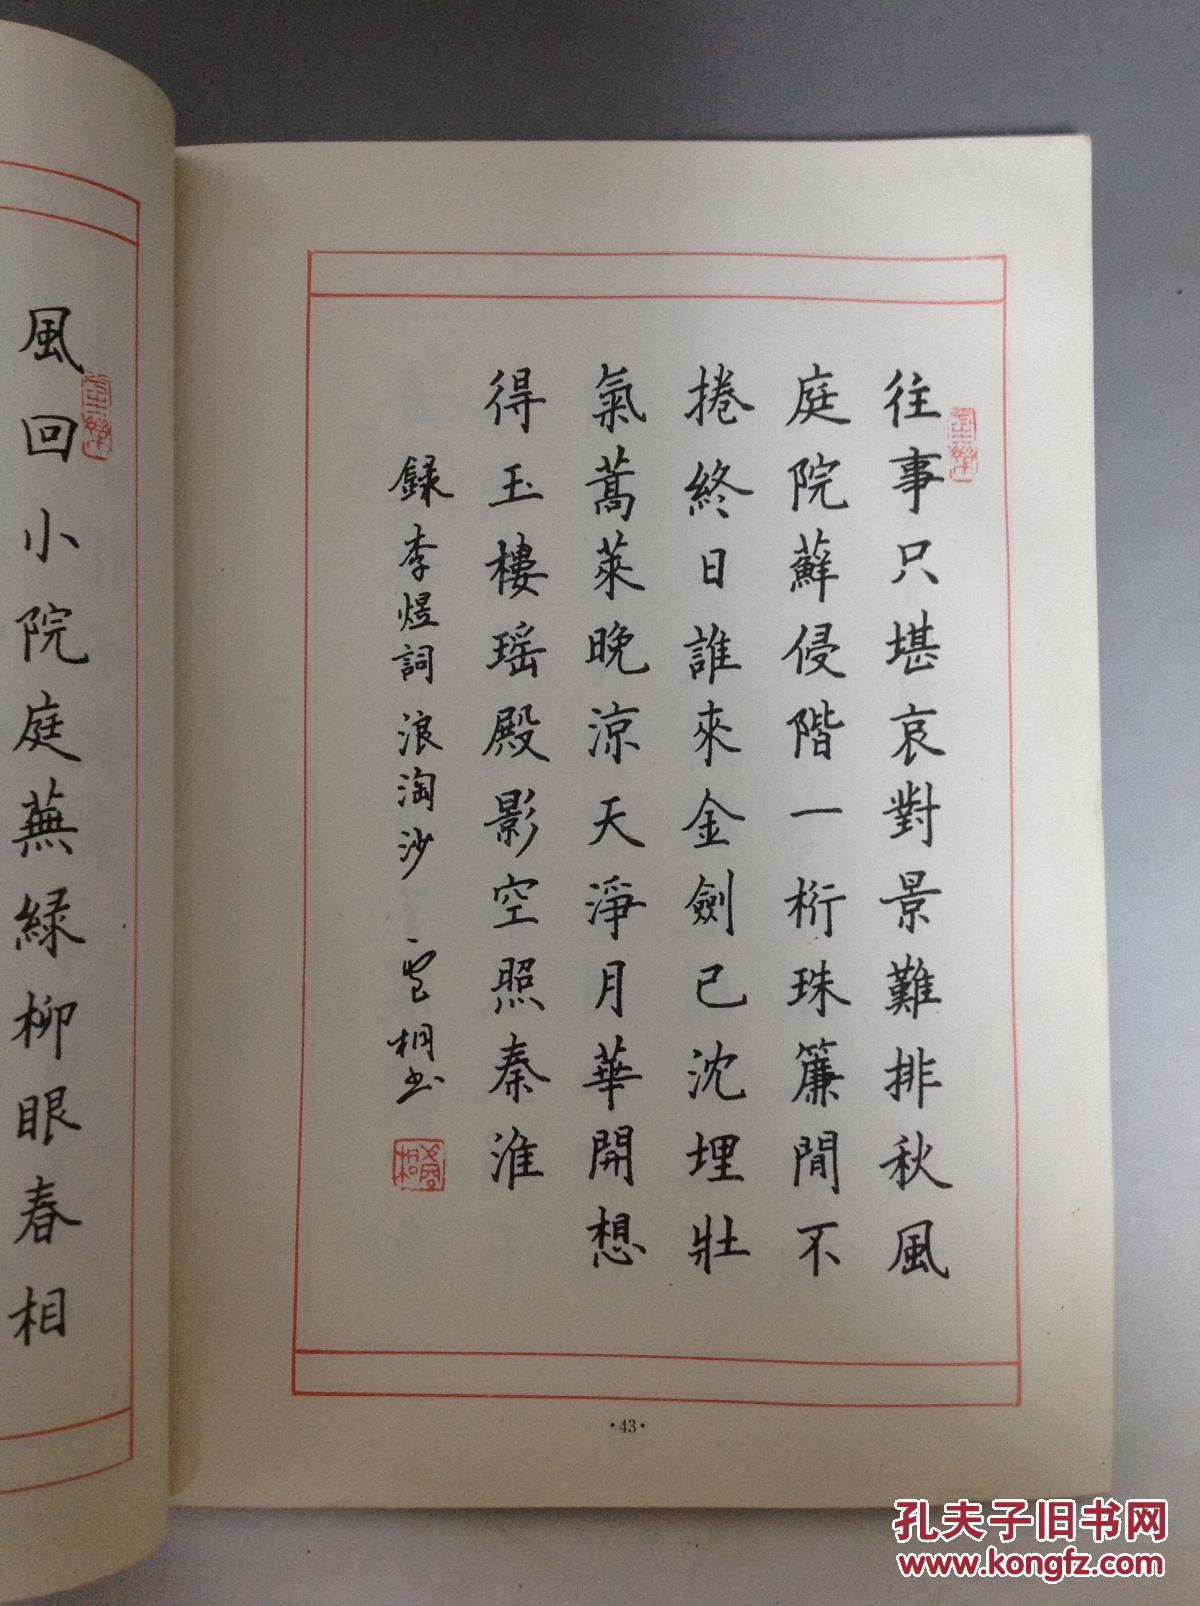 往事只堪哀對景難排秋風
庭院蘚侵階一桁珠簾閒不
捲終日誰來金劍已沈埋壯
氣蒿萊晚涼天淨月華開想
得玉樓瑶殿影空照秦淮
録李煜詞浪淘沙 雪桐书
·43·
風回小院庭蕪緑柳眼春相
孔夫子旧书网
www.kongfz.com